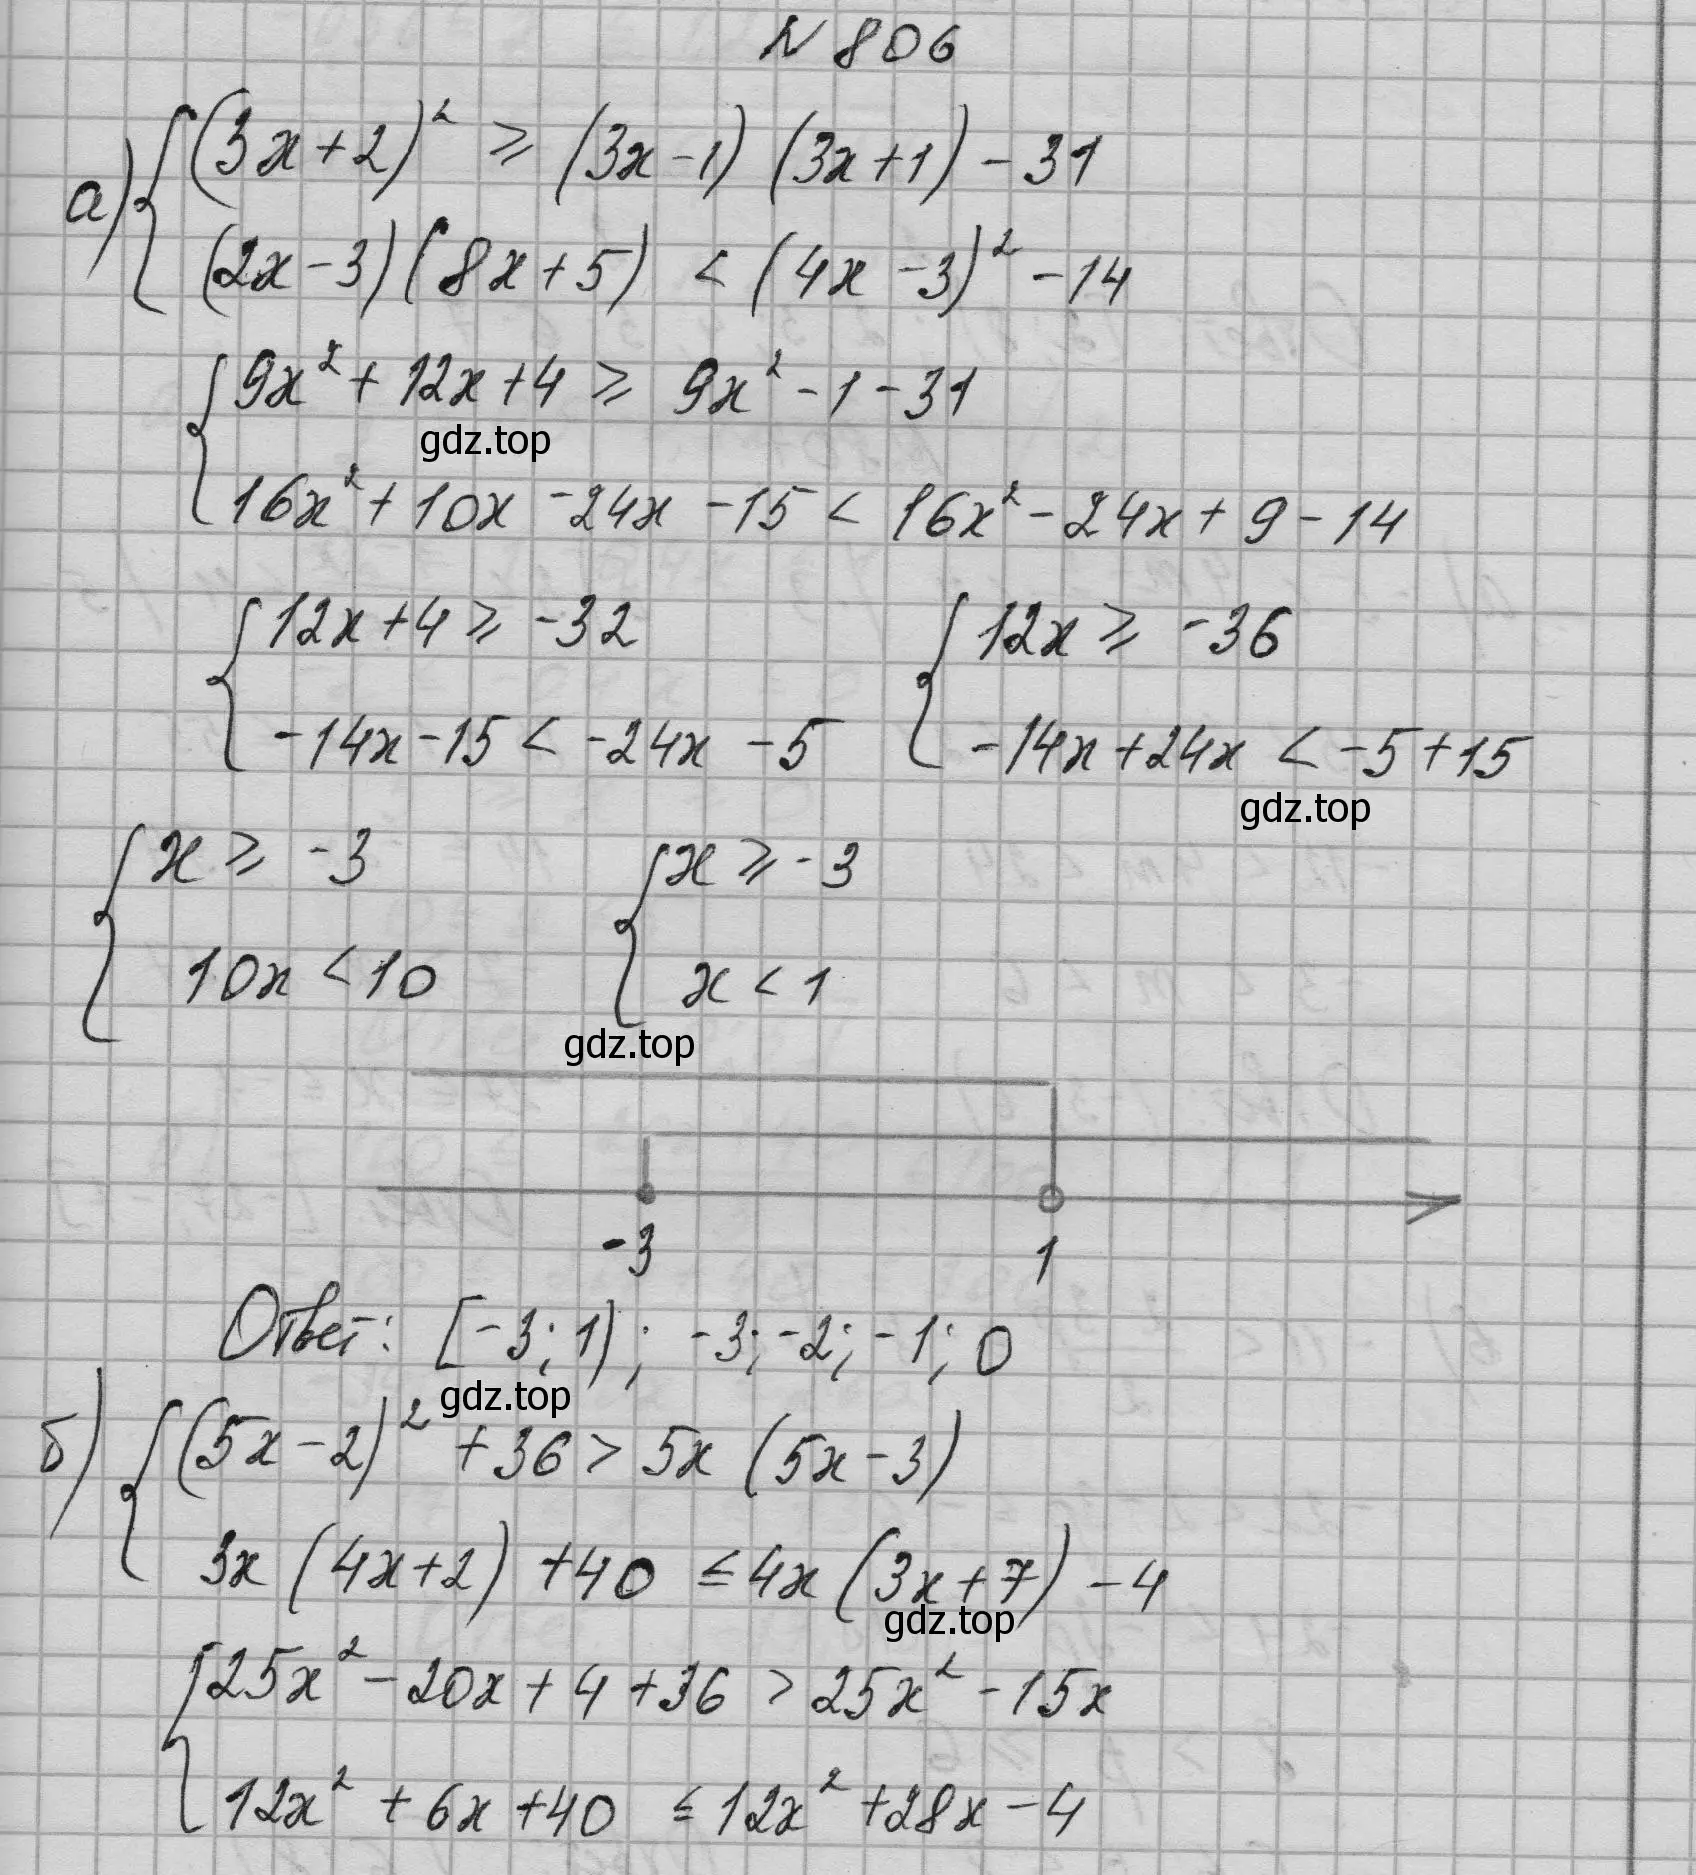 N 806
а) { (3x+2)² ≥ (3x-1) (3x+1) - 31
(2x-3)(8x+5) < (4x-3)² - 14
{ 9x² + 12x + 4 ≥ 9x² - 1 - 31
gdz.top
16x² + 10x - 24x - 15 < 16x² - 24x + 9 - 14
{ 12x + 4 ≥ -32 { 12x ≥ -36
-14x - 15 < -24x - 5 -14x + 24x < -5 + 15
gdz.top
{ x ≥ -3 { x ≥ -3
10x < 10 x < 1
gdz.top
-3 1
Ответ: [-3; 1); -3; -2; -1; 0
gdz.top
б) { (5x-2)² + 36 > 5x (5x-3)
3x (4x+2) + 40 ≤ 4x (3x+7) - 4
gdz.top
{ 25x² - 20x + 4 + 36 > 25x² - 15x
12x² + 6x + 40 ≤ 12x² + 28x - 4